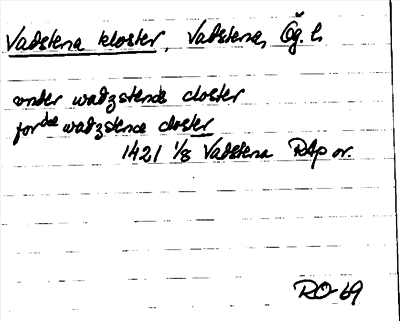 Vadstena kloster, Vadstena, Ög. l.
vnder wadzstena closter
forde wadzstena closter
1421 1/8 Vadstena RAp or.
RO-69